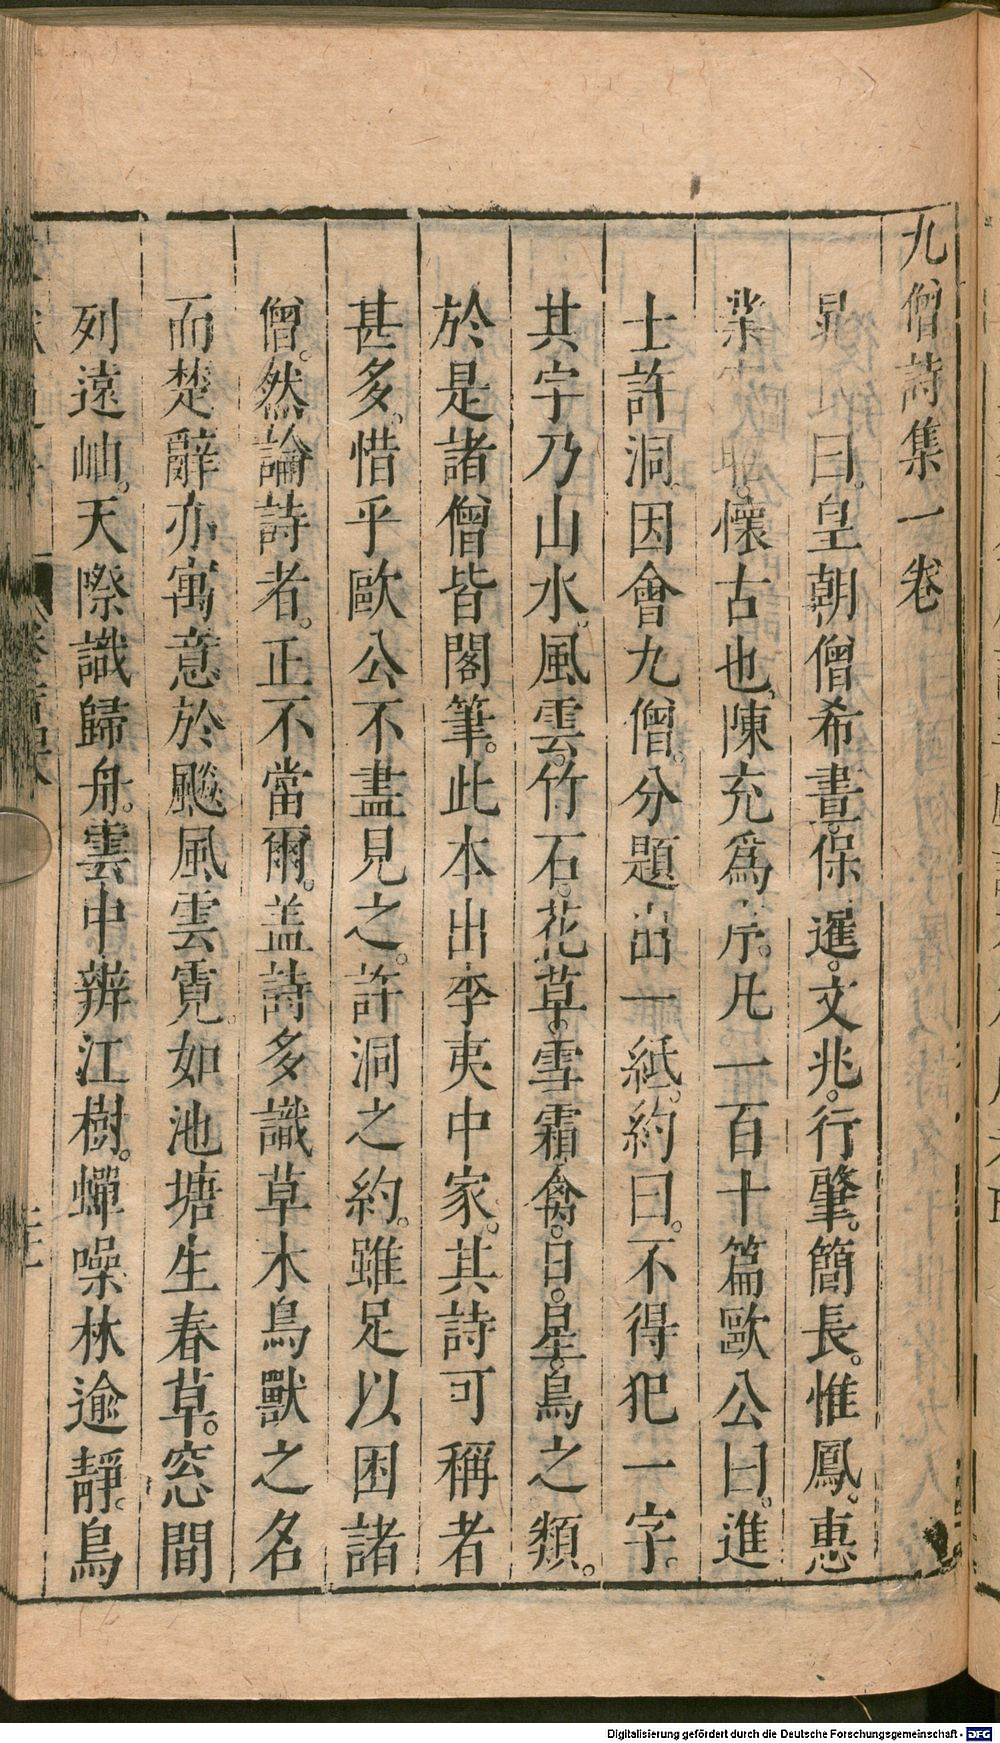 九僧詩集一卷
晁 曰。皇朝僧希晝。保暹。文兆。行肇。簡長。惟鳳。惠
崇。宇昭。懷古也。陳充爲序。凡一百十篇歐公曰。進
士許洞。因會九僧。分題出一紙。約曰。不得犯一字。
其字乃山水。風雲。竹石。花草。雪霜禽。日。星。鳥之類。
於是諸僧皆閣筆。此本出李夷中家。其詩可稱者
甚多。惜乎歐公不盡見之。許洞之約。雖足以困諸
僧。然論詩者。正不當爾。盖詩多識草木鳥獸之名
而楚辭亦寓意於飈風雲霓。如池塘生春草。窓間
列遠岫。天際識歸舟。雲中辨江樹。蟬噪林逾靜。鳥
Digitalisierung gefördert durch die Deutsche Forschungsgemeinschaft - DFG